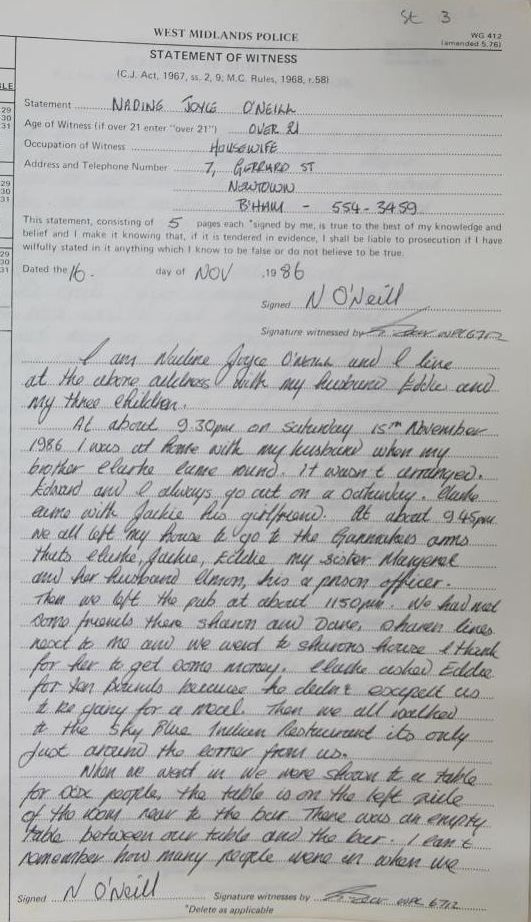 St 3
WEST MIDLANDS POLICE
WG 412
(amended 5.76)
STATEMENT OF WITNESS
(C.J. Act, 1967, ss. 2, 9; M.C. Rules, 1968, r.58)
Statement NADINE JOYCE O'NEILL
Age of Witness (if over 21 enter "over 21") OVER 21
Occupation of Witness HOUSEWIFE
Address and Telephone Number 7, GERRARD ST
NEWTOWN
B'HAM - 554-3459
This statement, consisting of 5 pages each *signed by me, is true to the best of my knowledge and
belief and I make it knowing that, if it is tendered in evidence, I shall be liable to prosecution if I have
wilfully stated in it anything which I know to be false or do not believe to be true.
Dated the 16. day of NOV 1986
Signed N O'Neill
Signature witnessed by WPC 6712
I am Nadine Joyce O'Neill and I live
at the above address with my husband Eddie and
my three children.
At about 9.30pm on Saturday 15th November
1986 I was at home with my husband when my
brother Clarke came round. It wasn't arranged.
Edward and I always go out on a Saturday. Clarke
came with Jackie his girlfriend. At about 945pm
we all left my house to go to the Gunmakers arms
thats Clarke, Jackie, Eddie my sister Margeret
and her husband his a prison officer.
Then we left the pub at about 1150pm. We had met
some friends there sharon and Dave, sharon lives
next to me and we went to sharons house I think
for her to get some money. Clarke asked Eddie
for ten pounds because he didnt expect us
to be going for a meal. Then we all walked
to the Sky Blue Indian Restaurant its only
just around the corner from us.
When we went in we were shown to a table
for six people, the table is on the left side
of the room near to the bar. There was an empty
table between our table and the bar. I can't
remember how many people were in when we
Signed N O'Neill Signature witnesses by WPC 6712
*Delete as applicable